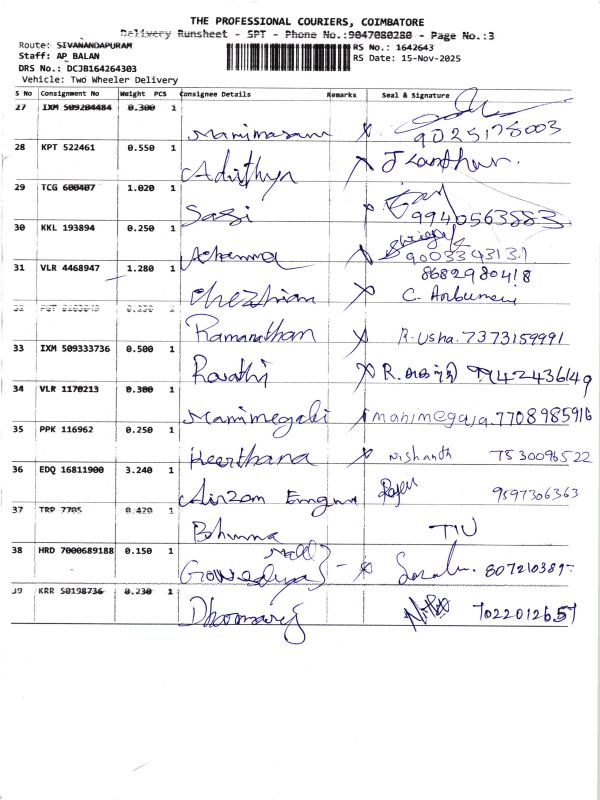 THE PROFESSIONAL COURIERS, COIMBATORE
Delivery Runsheet - SPT - Phone No.:9047080280 - Page No.:3
Route: SIVANANDAPURAM
Staff: AP BALAN
DRS No.: DCJB164264303
Vehicle: Two Wheeler Delivery
RS No.: 1642643
RS Date: 15-Nov-2025
S No Consignment No Weight PCS Consignee Details Remarks Seal & Signature
27 IXM 509204484 0.300 1
Manimaran X 9025178003
28 KPT 522461 0.550 1
Adithya X
29 TCG 600407 1.020 1
Sasi X 9940563883
30 KKL 193894 0.250 1
X 9003343131
31 VLR 4468947 1.280 1
8682980418
Chezhian X C.
32 1
Ramanathan X R. Usha. 7373159991
33 IXM 509333736 0.500 1
Revathi X R. ரேவதி 9942436149
34 VLR 1170213 0.300 1
Manimegalai X manimegala. 7708985916
35 PPK 116962 0.250 1
Keerthana X Nishanth 7530096522
36 EDQ 16811900 3.240 1
9597306363
37 TRP 7705 0.420 1
38 HRD 7000689188 0.150 1
X
39 KRR 50198736 0.230 1
Dharmaraj 7022012657